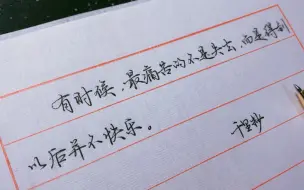 有时候，最痛苦的不是失去，而是得到
以后并不快乐。
千里抄